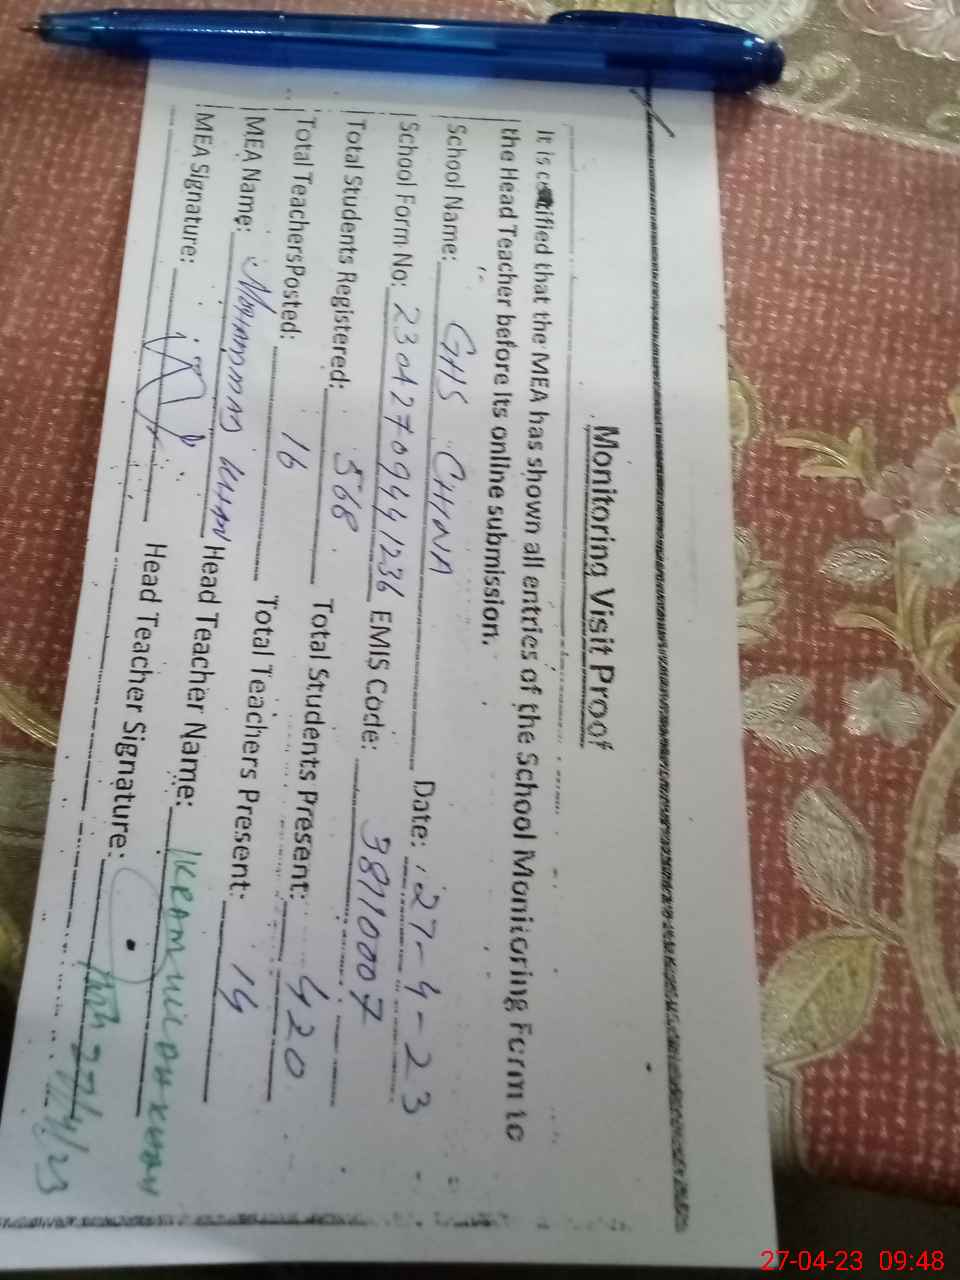 Monitoring Visit Proof
It is certified that the MEA has shown all entries of the School Monitoring Form to
the Head Teacher before its online submission.
School Name: GHS CHNA Date: 27-4-23
School Form No: 23042709441236 EMIS Code: 38110007
Total Students Registered: 568 Total Students Present: 420
Total TeachersPosted: 16 Total Teachers Present: 14
MEA Name: Mohammad Khan Head Teacher Name: IKRAMULLAH KHAN
MEA Signature: Head Teacher Signature: 27/4/23
27-04-23 09:48